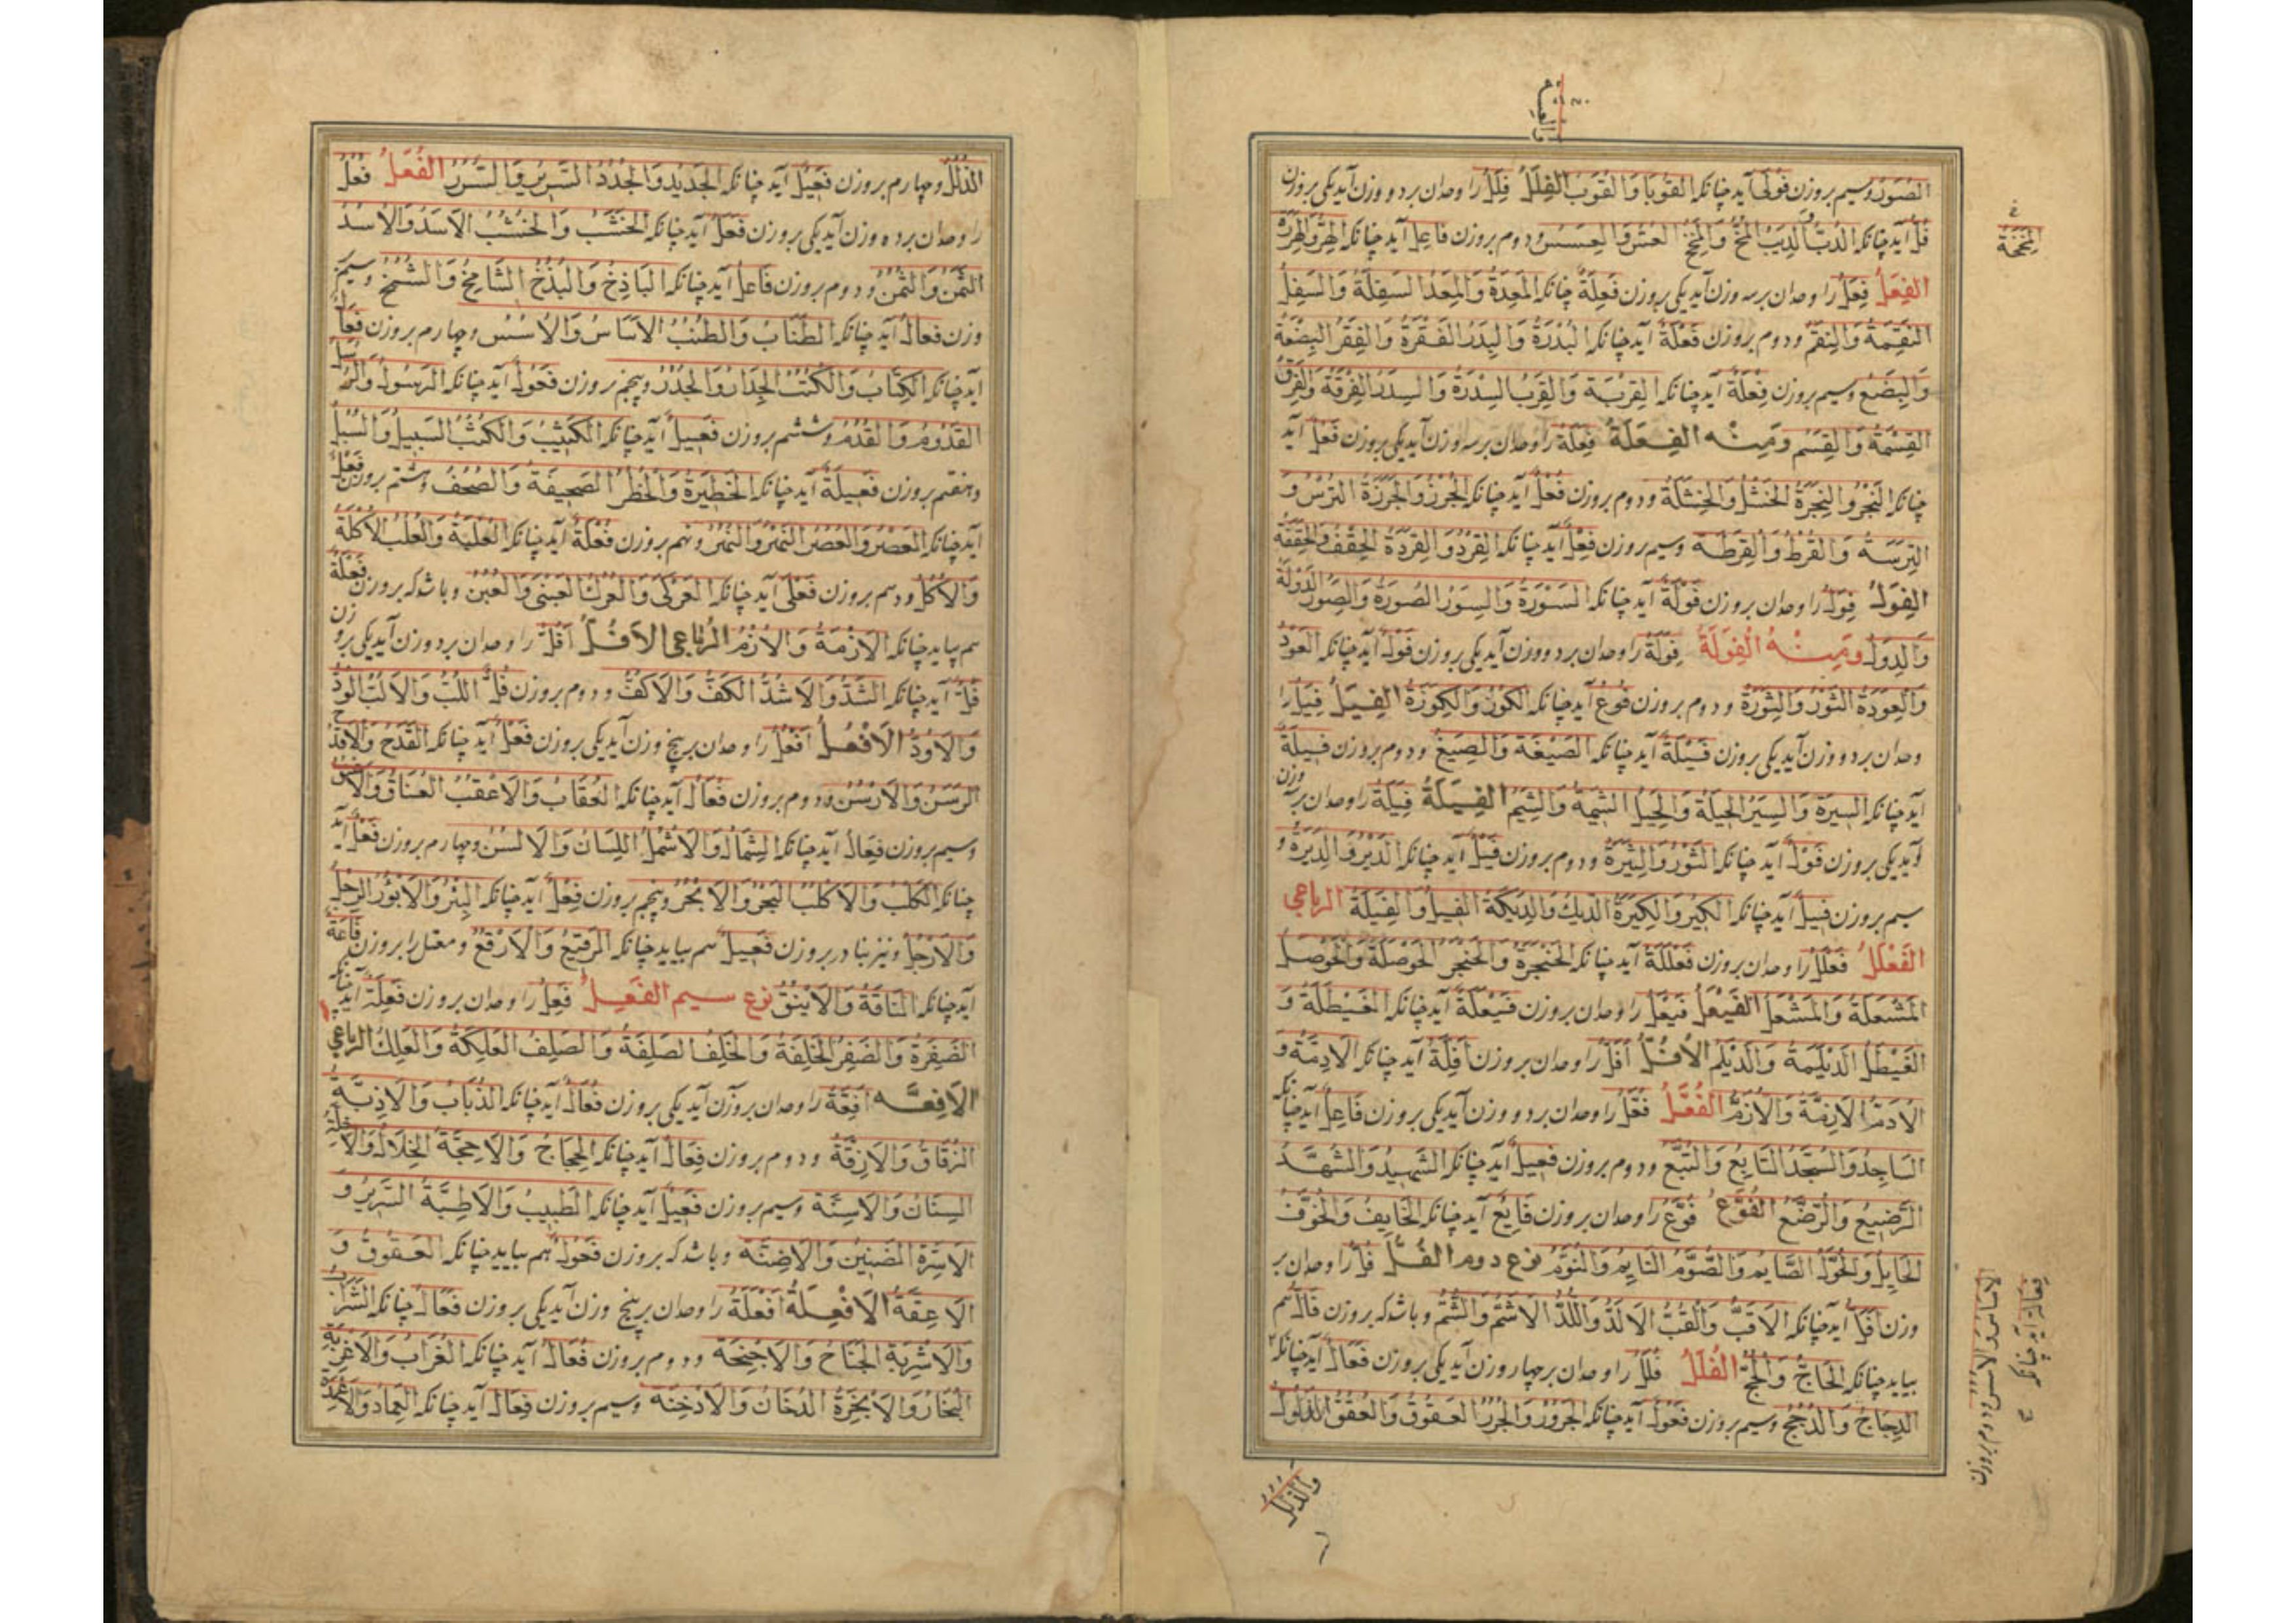 الصُوَر وسیم بروزن فُولَی آید چنانکه القُوبَا وَالقُوَب الفِلَلُ فِلَلٌ را وحدان بر دو وزن آید یکی بروزن
فُلٌّ آید چنانکه الدُبّ وَالدِبَب المُخّ وَالمِخَخ العُشّ وَالعِشَش ودوم بروزن فاعِل آید چنانکه الهِرّ وَالهِرَرَة
الفِعَلُ فِعَلٌ را وحدان بر سه وزن آید یکی بروزن فَعِلَةٌ چنانکه المَعِدَة وَالمِعَد السَفِلَة وَالسِفَل
النَقِمَة وَالنِقَم ودوم بروزن فَعْلَةٌ آید چنانکه البَدْرَة وَالبِدَر الفَقْرَة وَالفِقَر البَضْعَة
وَالبِضَع وسیم بروزن فِعْلَةٌ آید چنانکه القِرْبَة وَالقِرَب السِدْرَة وَالسِدَر الفِرْقَة وَالفِرَق
القِسْمَة وَالقِسَم وَمِنْه الفِعَلَةُ فِعَلَةٌ را وحدان بر سه وزن آید یکی بروزن فَعْلٌ آید
چنانکه النَجْر وَالنِجَرَة الخَشْل وَالخِشَلَة ودوم بروزن فُعْلٌ آید چنانکه الجُرْز وَالجِرَزَة التُرْس وَ
التِرَسَة وَالقُرْط وَالقِرَطَة وسیم بروزن فِعْلٌ آید چنانکه القِرْد وَالقِرَدَة الحِقْف وَالحِقَفَة
الفِوَلُ فِوَلٌ را وحدان بروزن فَوْلَةٌ آید چنانکه السَوْرَة وَالسِوَر الصُورَة وَالصِوَر الدَوْلَة
وَالدِوَل وَمِنْهُ الفِوَلَةُ فِوَلَةٌ را وحدان بر دو وزن آید یکی بروزن فَوْلٌ آید چنانکه العَوْد
وَالعِوَدَة الثَوْر وَالثِوَرَة ودوم بروزن فُوعٌ آید چنانکه الکُوز وَالکِوَزَة الفِیَلُ فِیَلٌ را
وحدان بر دو وزن آید یکی بروزن فَیْلَةٌ آید چنانکه الصَیْغَة وَالصِیَغ ودوم بروزن فِیلَةٌ
آید چنانکه السِیرَة وَالسِیَر الحِیلَة وَالحِیَل الشِیمَة وَالشِیَم الفِیَلَةُ فِیَلَةٌ را وحدان بر سه وزن
آید یکی بروزن فَوْلٌ آید چنانکه الثَوْر وَالثِیَرَة ودوم بروزن فَیْلٌ آید چنانکه الدَیْر وَالدِیَرَة و
سیم بروزن فِیلٌ آید چنانکه الکِیر وَالکِیَرَة الدِیك وَالدِیَکَة الفِیل وَالفِیَلَة الرباعی
الفَعْلَلُ فَعْلَلٌ را وحدان بروزن فَعْلَلَةٌ آید چنانکه الحَنْجَرَة وَالحَنْجَر الحَوْصَلَة وَالحَوْصَل
المَشْعَلَة وَالمَشْعَل الفَیْعَلُ فَیْعَلٌ را وحدان بروزن فَیْعَلَةٌ آید چنانکه الغَیْطَلَة وَ
الغَیْطَل الدَیْلَمَة وَالدَیْلَم الأفُلُّ أفُلٌّ را وحدان بروزن أفِلَّةٌ آید چنانکه الادِمَّة وَ
الفُعَّلُ فُعَّلٌ را وحدان بر دو وزن آید یکی بروزن فَاعِلٌ آید چنانکه
السَاجِد وَالسُجَّد التَابِع وَالتُبَّع ودوم بروزن فَعِیلٌ آید چنانکه الشَهِید وَالشُهَّد
الرَضِیع وَالرُضَّع الفُوَّعُ فُوَّعٌ را وحدان بروزن فَایِعٌ آید چنانکه الخَایِف وَالخُوَّف
الحَایِل وَالحُوَّل الصَایِم وَالصُوَّم النَایِم وَالنُوَّم نوع دوم الفُلُّ فُلٌّ را وحدان بر
وزن أفَلٌّ آید چنانکه الاَقَبّ وَالقُبّ الاَلَدّ وَاللُدّ الاَشَمّ وَالشُمّ وباشد که بروزن فَالٌّ هم
بیاید چنانکه الحَاجّ وَالحُجّ الفُلُلُ فُلُلٌ را وحدان بر چهار وزن آید یکی بروزن فَعَالٌ آید چنانکه
الدِجَاج وَالدُجُج وسیم بروزن فَعُولٌ آید چنانکه الجَرُور وَالجُرُر العَقُوق وَالعُقُق الذَلُول
وَالذُلُل
المِخَخَة
الاساس وَالاُسُس ودوم بروزن
فِعَالٌ آید چنانکه
الذُلُل وچهارم بروزن فَعِیلٌ آید چنانکه الجَدِید وَالجُدُد السَرِیر وَالسُرُر الفُعُلُ فُعُلٌ
را وحدان بر ده وزن آید یکی بروزن فَعَلٌ آید چنانکه الخَشَب وَالخُشُب الاَسَد وَالاُسُد
الثَمَن وَالثُمُن ودوم بروزن فَاعِلٌ آید چنانکه البَاذِخ وَالبُذُخ الشَامِخ وَالشُمُخ وسیم بر
وزن فَعَالٌ آید چنانکه الطَنَاب وَالطُنُب الاَسَاس وَالاُسُس وچهارم بروزن فِعَالٌ
آید چنانکه الکِتَاب وَالکُتُب الجِدَار وَالجُدُر وپنجم بروزن فَعُولٌ آید چنانکه الرَسُول وَالرُسُل
القَدُوم وَالقُدُم وششم بروزن فَعِیلٌ آید چنانکه الکَثِیب وَالکُثُب السَبِیل وَالسُبُل
وهفتم بروزن فَعِیلَةٌ آید چنانکه الحَظِیرَة وَالحُظُر الصَحِیفَة وَالصُحُف وهشتم بروزن فَعْلٌ
آید چنانکه العَصْر وَالعُصُر النَمْر وَالنُمُر ونهم بروزن فُعْلَةٌ آید چنانکه العُلْبَة وَالعُلُب الاُکْلَة
وَالاُکُل ودهم بروزن فَعْلَی آید چنانکه العَرْکَی وَالعُرُك العَبْنَی وَالعُبُن وباشد که بروزن فَعْلَةٌ
هم بیاید چنانکه الاَزْمَة وَالاُزُم الرباعی الاَفُلُّ اَفُلٌّ را وحدان بر دو وزن آید یکی بروزن
فَلٌّ آید چنانکه الشَدّ وَالاَشُدّ الکَفّ وَالاَکُفّ ودوم بروزن فُلٌّ اللُبّ وَالاَلُبّ الوُدّ
وَالاَوُدّ الاَفْعُلُ اَفْعُلٌ را وحدان بر پنج وزن آید یکی بروزن فَعَلٌ آید چنانکه القَدَح وَالاَقْدُح
الرَسَن وَالاَرْسُن ودوم بروزن فُعَالٌ آید چنانکه العُقَاب وَالاَعْقُب العُنَاق وَالاَعْنُق
وسیم بروزن فِعَالٌ آید چنانکه الشِمَال وَالاَشْمُل اللِسَان وَالاَلْسُن وچهارم بروزن فَعْلٌ آید
چنانکه الکَلْب وَالاَکْلُب البَحْر وَالاَبْحُر وپنجم بروزن فِعْلٌ آید چنانکه البِئْر وَالاَبْؤُر الرِجْل
وَالاَرْجُل ونیز بنادر بروزن فَعِیلٌ هم بیاید چنانکه الرَقِیع وَالاَرْقُع ومعتل را بروزن فَاعَةٌ
آید چنانکه النَاقَة وَالاَیْنُق نوع سیم الفَعِلُ فَعِلٌ را وحدان بروزن فَعِلَةٌ آید چنانکه
الضَفِرَة وَالضَفِر الخَلِفَة وَالخَلِف الصَلِفَة وَالصَلِف العَلِکَة وَالعَلِك الرباعی
الاَفِعَّه اَفِعَّةٌ را وحدان بر وزن آید یکی بروزن فُعَالٌ آید چنانکه الذُبَاب وَالاَذِبَّة
الزُقَاق وَالاَزِقَّة ودوم بروزن فِعَالٌ آید چنانکه الحِجَاج وَالاَحِجَّة الخِلَال وَالاَخِلَّة
السِنَان وَالاَسِنَّة وسیم بروزن فَعِیلٌ آید چنانکه الطَبِیب وَالاَطِبَّة السَرِیر وَ
الاَسِرَّة الضَنِین وَالاَضِنَّة وباشد که بروزن فَعُولٌ هم بیاید چنانکه العَقُوق وَ
الاَعِقَّة الاَفْعِلَةُ اَفْعِلَةٌ را وحدان بر پنج وزن آید یکی بروزن فَعَالٌ چنانکه الشَرَاب
وَالاَشْرِبَة الجَنَاح وَالاَجْنِحَة ودوم بروزن فُعَالٌ آید چنانکه الغُرَاب وَالاَغْرِبَة
البُخَار وَالاَبْخِرَة الدُخَان وَالاَدْخِنَة وسیم بروزن فِعَالٌ آید چنانکه العِمَاد وَالاَعْمِدَة